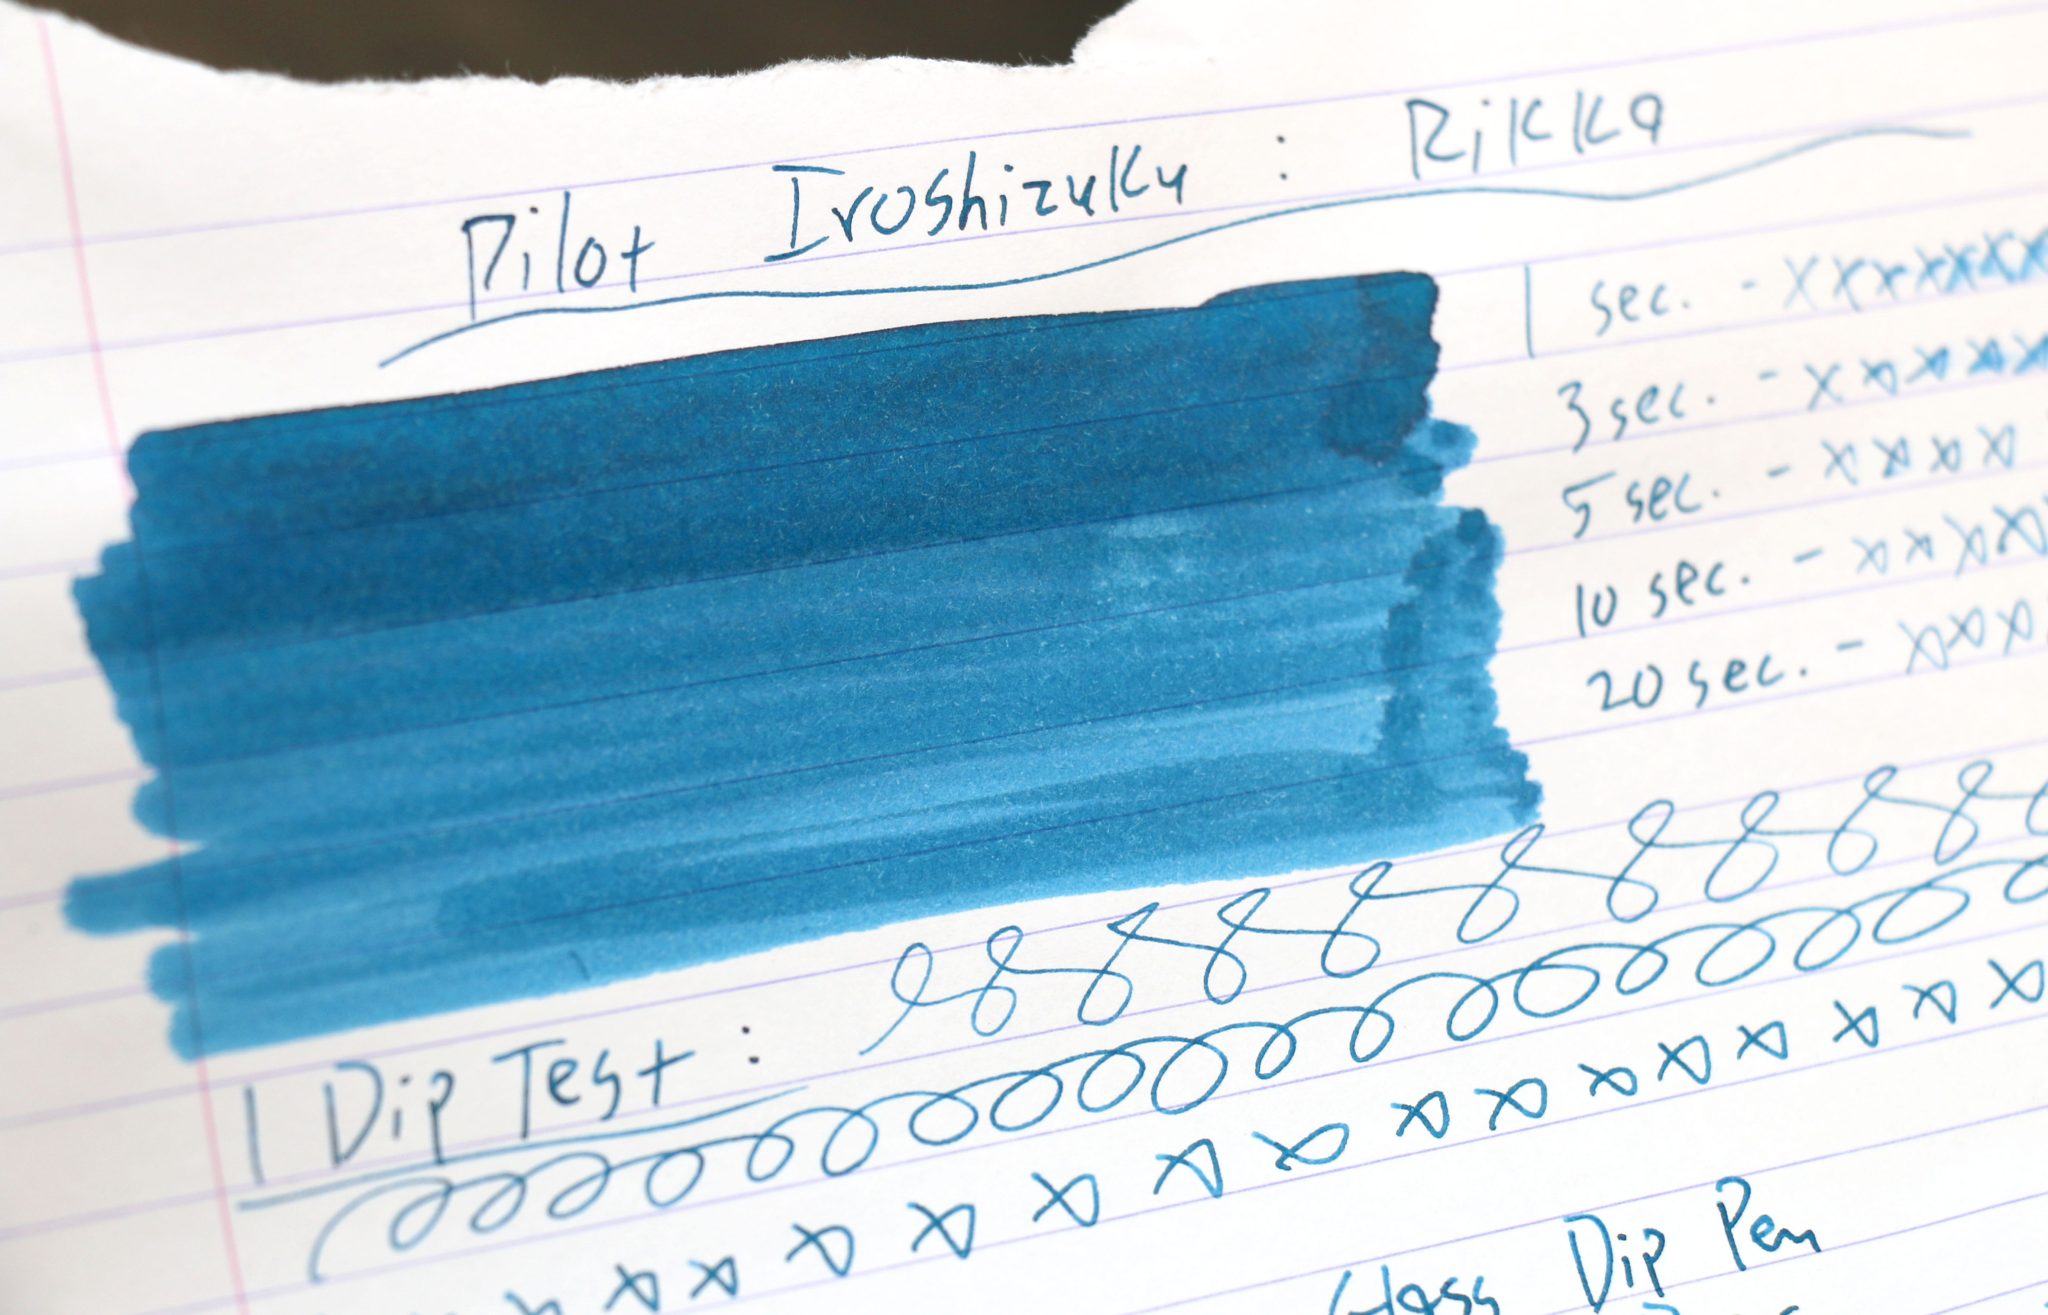 Pilot Iroshizuku : Rikka
1 sec. - xxxxxxx
3 sec. - xxxxxx
5 sec. - xxxx
10 sec. - xxxx
20 sec. - xxx
1 Dip Test :
Glass Dip Pen